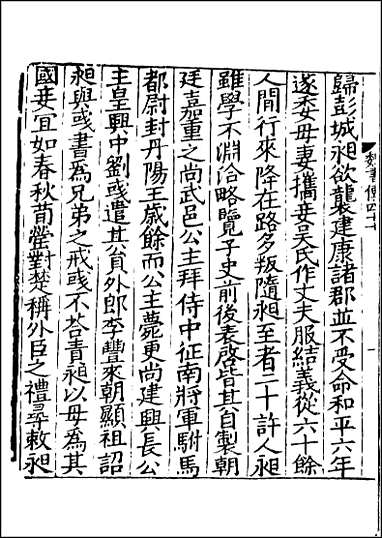 歸彭城昶欲襲建康諸郡並不受命和平六年
遂委母妻攜妾吳氏作丈夫服結義從六十餘
人間行來降在路多叛隨昶至者二十許人昶
雖學不淵洽略覽子史前後表啓皆其自製朝
廷嘉重之尚武邑公主拜侍中征南將軍駙馬
都尉封丹陽王歲餘而公主薨更尚建興長公
主皇興中劉彧遣其負外郎李豐來朝顯祖詔
昶與彧書爲兄弟之戒彧不荅責昶以母爲其
國妾宜如春秋荀罃對楚稱外臣之禮尋敕昶
魏書傳四十七